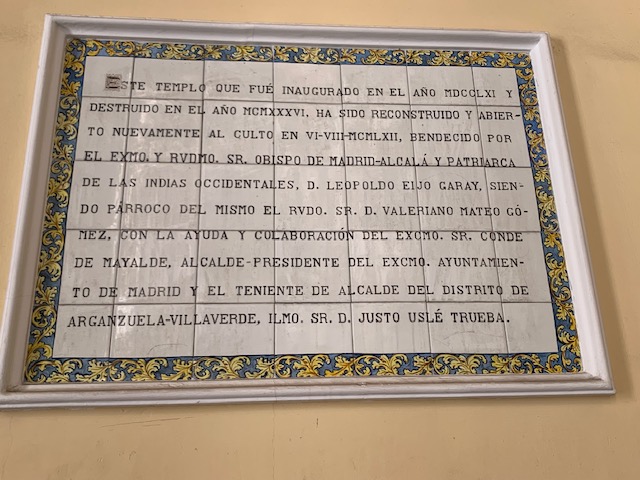 ESTE TEMPLO QUE FUÉ INAUGURADO EN EL AÑO MDCCLXI Y
DESTRUIDO EN EL AÑO MCMXXXVI, HA SIDO RECONSTRUIDO Y ABIER-
TO NUEVAMENTE AL CULTO EN VI-VIII-MCMLXII, BENDECIDO POR
EL EXMO. Y RVDMO. SR. OBISPO DE MADRID-ALCALÁ Y PATRIARCA
DE LAS INDIAS OCCIDENTALES, D. LEOPOLDO EIJO GARAY, SIEN-
DO PÁRROCO DEL MISMO EL RVDO. SR. D. VALERIANO MATEO GÓ-
MEZ, CON LA AYUDA Y COLABORACIÓN DEL EXCMO. SR. CONDE
DE MAYALDE, ALCALDE-PRESIDENTE DEL EXCMO. AYUNTAMIEN-
TO DE MADRID Y EL TENIENTE DE ALCALDE DEL DISTRITO DE
ARGANZUELA-VILLAVERDE, ILMO. SR. D. JUSTO USLÉ TRUEBA.